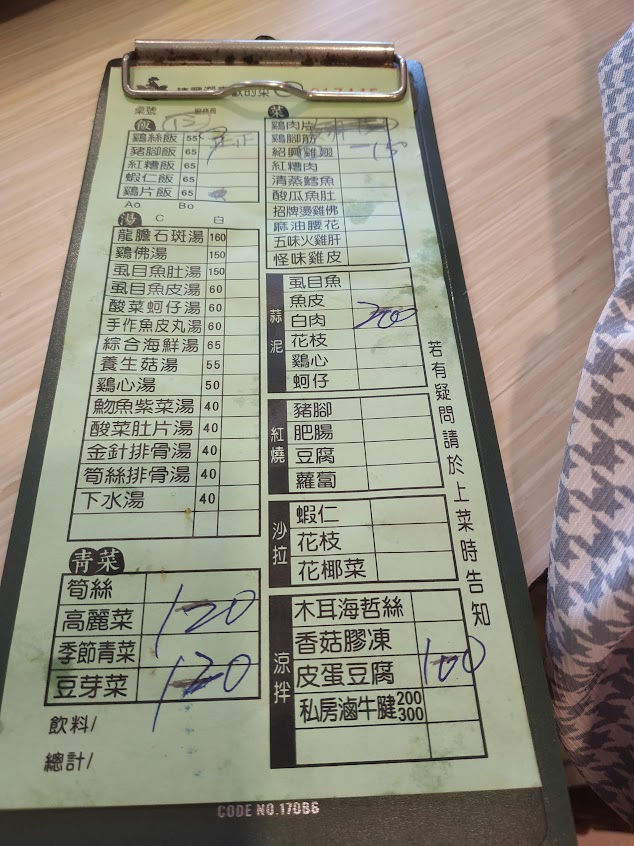 的菜
桌號
飯
鷄絲飯 55 正正
豬腳飯 65
紅糟飯 65
蝦仁飯 65
鷄片飯 65
Ao Bo
湯 C 白
龍膽石斑湯 160
鷄佛湯 150
虱目魚肚湯 150
虱目魚皮湯 60
酸菜蚵仔湯 60
手作魚皮丸湯 60
綜合海鮮湯 65
養生菇湯 55
鷄心湯 50
魩魚紫菜湯 40
酸菜肚片湯 40
金針排骨湯 40
筍絲排骨湯 40
下水湯 40
青菜
筍絲
高麗菜 120
季節青菜
豆芽菜 120
飲料/
總計/
菜
鷄肉片
鷄腳筋
紹興雞翅
紅糟肉
清蒸鱈魚
酸瓜魚肚
招牌燙雞佛
麻油腰花
五味火雞肝
怪味雞皮
蒜泥
虱目魚
魚皮
白肉 200
花枝
鷄心
蚵仔
紅燒
豬腳
肥腸
豆腐
蘿蔔
沙拉
蝦仁
花枝
花椰菜
涼拌
木耳海哲絲
香菇膠凍
皮蛋豆腐 100
私房滷牛腱 200 300
若有疑問請於上菜時告知
CODE NO.170B6